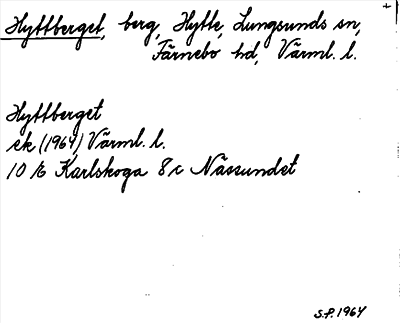 Hyttberget, berg, Hytte, Lungsunds sn,
Färnebo hd, Värml. l.
Hyttberget
ek (1964) Värml. l.
10 E Karlskoga 8c Nässundet
S.P. 1964